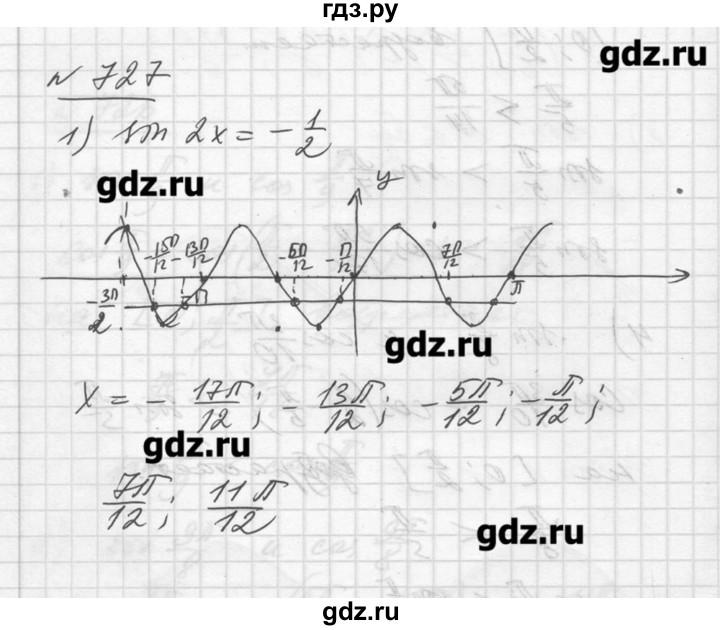 гдз.ру
gdz.ru
N 727
1) sin 2x = - 1/2
gdz.ru
y
-15π/12 -13π/12 -5π/12 -π/12 7π/12
-3π/2 -π π
gdz.ru
x = - 17π/12; - 13π/12; - 5π/12; - π/12;
gdz.ru
7π/12; 11π/12
gdz.ru
gdz.ru